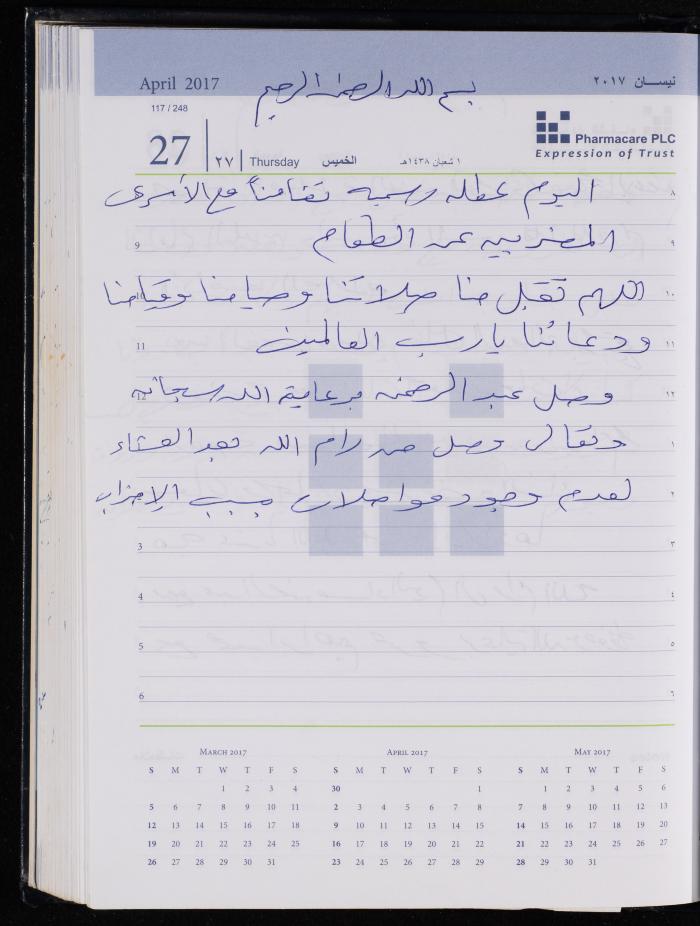 April 2017 نيسان ٢٠١٧
بسم الله الرحمن الرحيم
117 / 248
27 ٢٧ Thursday الخميس ١ شعبان ١٤٣٨هـ
Pharmacare PLC
Expression of Trust
اليوم عطله رسميه تضامناً مع الأسرى ٨
9 المضربين عن الطعام ٩
اللهم تقبل منا صلاتنا وصيامنا وقيامنا ١٠
11 ودعائنا يارب العالمين ١١
12 وصل عبد الرحمن برعاية الله سبحانه ١٢
وتعالى وصل من رام الله بعد العشاء ١
لعدم وجود مواصلات بسبب الإضراب ٢
3 ٣
4 ٤
5 ٥
6 ٦
MARCH 2017
S M T W T F S
1 2 3 4
5 6 7 8 9 10 11
12 13 14 15 16 17 18
19 20 21 22 23 24 25
26 27 28 29 30 31
APRIL 2017
S M T W T F S
30 1
2 3 4 5 6 7 8
9 10 11 12 13 14 15
16 17 18 19 20 21 22
23 24 25 26 27 28 29
MAY 2017
S M T W T F S
1 2 3 4 5 6
7 8 9 10 11 12 13
14 15 16 17 18 19 20
21 22 23 24 25 26 27
28 29 30 31